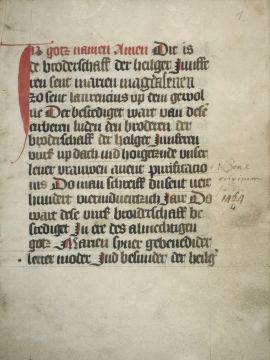 1.
In gotz namen Amen Dit is
de broderschaff der heilger Junffe
ren sent marien magdalenen
zo sent laurencius up dem gewol
ue Der bestediget wart van dese
erberen luden den broderen der
broderschaff der heilger Junferen
vursc up dach und hoigetzide unser
leuer vrauwen auent purificatio
nis Do man schreiff dusent veir
hundert vierinduentzich Jair Do
wart dese vursc broiderschaff be
stediget In ere des almechtigen
gotz Marien syner gebenedider
leuer moder Ind besunder der heilg
origin
1424